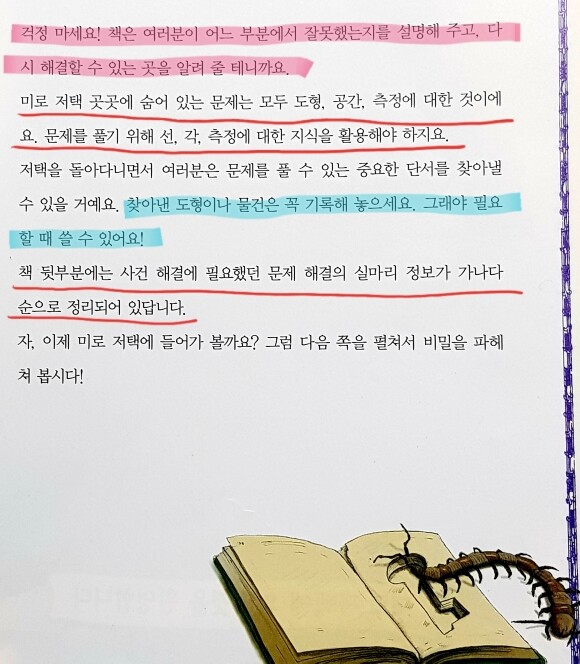 걱정 마세요! 책은 여러분이 어느 부분에서 잘못했는지를 설명해 주고, 다
시 해결할 수 있는 곳을 알려 줄 테니까요.
미로 저택 곳곳에 숨어 있는 문제는 모두 도형, 공간, 측정에 대한 것이에
요. 문제를 풀기 위해 선, 각, 측정에 대한 지식을 활용해야 하지요.
저택을 돌아다니면서 여러분은 문제를 풀 수 있는 중요한 단서를 찾아낼
수 있을 거예요. 찾아낸 도형이나 물건은 꼭 기록해 놓으세요. 그래야 필요
할 때 쓸 수 있어요!
책 뒷부분에는 사건 해결에 필요했던 문제 해결의 실마리 정보가 가나다
순으로 정리되어 있답니다.
자, 이제 미로 저택에 들어가 볼까요? 그럼 다음 쪽을 펼쳐서 비밀을 파헤
쳐 봅시다!